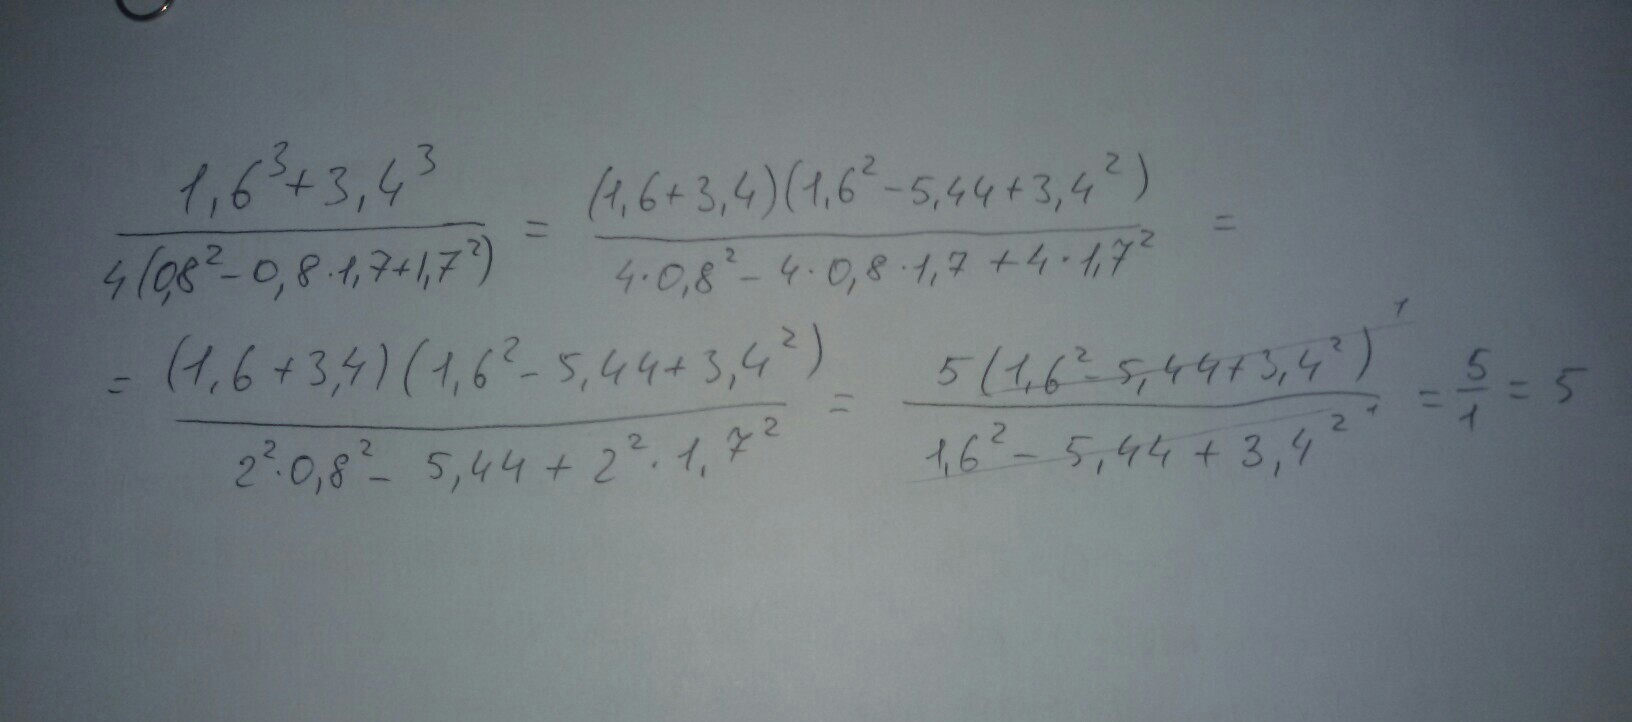 (1,6³+3,4³)/(4(0,8²-0,8·1,7+1,7²)) = ((1,6+3,4)(1,6²-5,44+3,4²))/(4·0,8²-4·0,8·1,7+4·1,7²) =
= ((1,6+3,4)(1,6²-5,44+3,4²))/(2²·0,8²-5,44+2²·1,7²) = (5(1,6²-5,44+3,4²)¹)/(1,6²-5,44+3,4² ¹) = 5/1 = 5